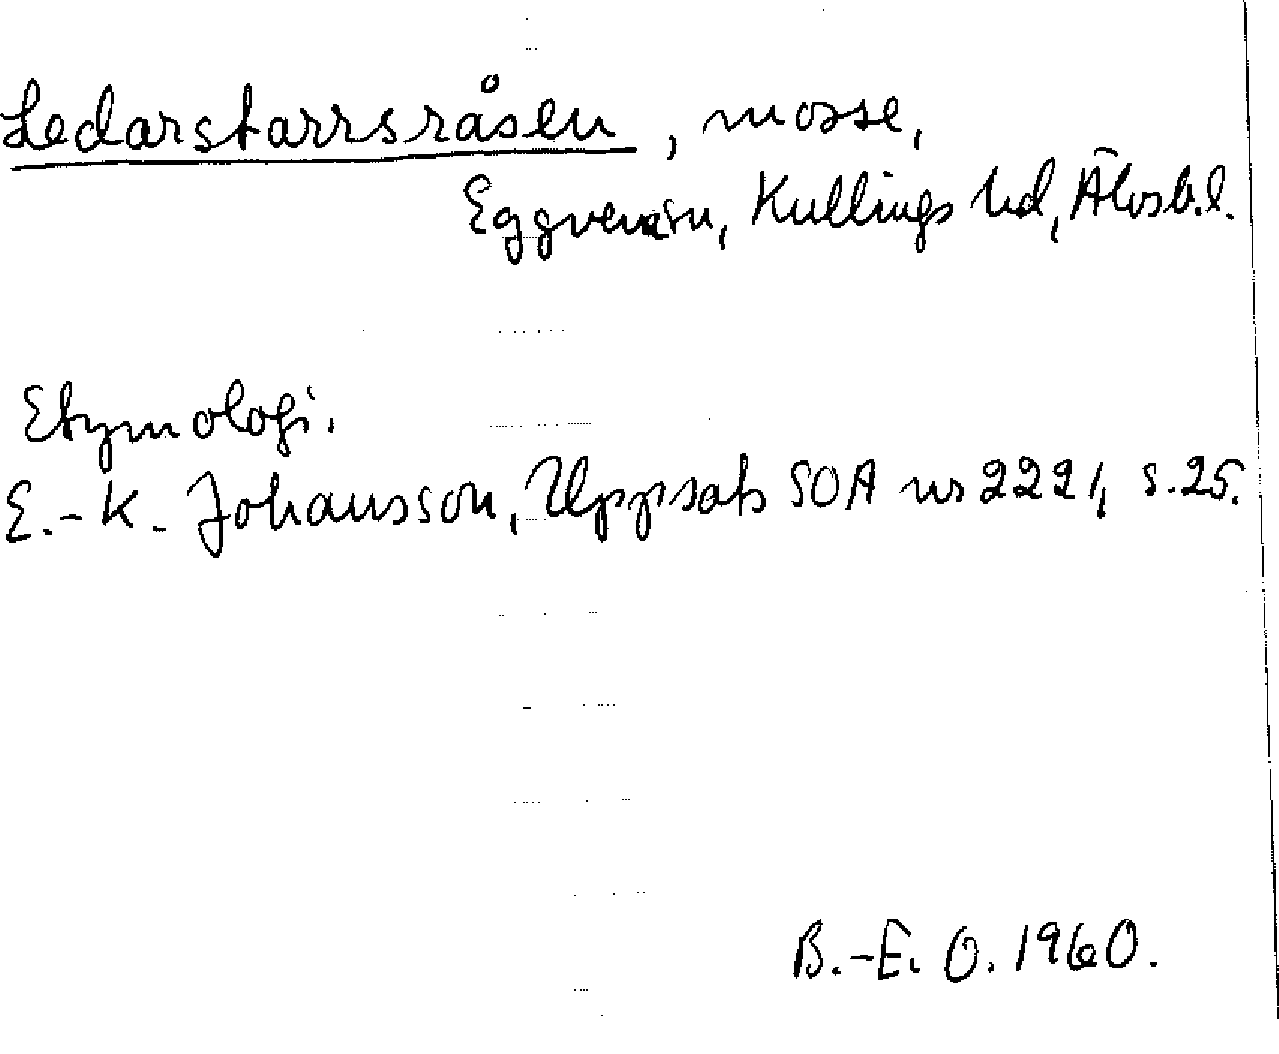 Ledarstarrsråsen, mosse,
Eggvena sn, Kullings hd, Älvsb.l.
Etymologi.
E.-K. Johansson, Uppsats SOA nr 2221, s.25.
B.-E. O. 1960.